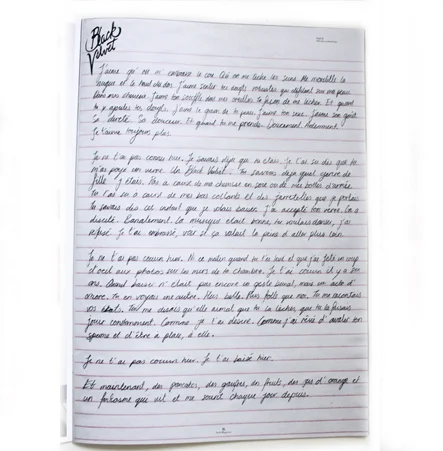 Black
Velvet
J'aime qu'on m'embrasse le cou. Qu'on me lèche les seins. Me mordille la
nuque et le haut du dos. J'aime sentir tes doigts
dans mes cheveux. J'aime ton souffle dans mes oreilles, ta façon de me lécher. Et quand
tu y ajoutes tes doigts. J'aime le grain de ta peau. J'aime ton sexe. J'aime son goût.
Sa dureté. Sa douceur. Et quand tu me prends. Doucement. Ardemment.
Je t'aime toujours plus.
Je ne t'ai pas connu hier. Je savais déjà qui tu étais. Je l'ai su dès que tu
m'as payé un verre. Un Black Velvet. Tu savais déjà quel genre de
fille j'étais. Pas à cause de ma chemise en soie ou de mes bottes d'armée.
Tu l'as su à cause de mes bas collants et des jarretelles que je portais.
Tu savais dès cet instant que je voulais baiser. J'ai accepté ton verre. On a
discuté. Banalement. La musique était bonne, tu voulais danser, j'ai
refusé. Je t'ai embrassé, voir si ça valait la peine d'aller plus loin.
Je ne t'ai pas connu hier. Ni ce matin quand tu t'es tué et que j'ai jeté un coup
d'oeil aux photos sur les murs de ta chambre. Je t'ai connu il y a dix
ans. Quand baiser n'était pas encore un geste banal, mais un acte d'
amour. Tu en voyais une autre. Plus belle. Plus folle que moi. Tu me racontais
vos ébats. Toi me disais qu'elle aimait que tu la lèches, que tu la faisais
jouir constamment. Comme je t'ai désiré. Comme j'ai rêvé d'avaler ton
sperme et d'être à place, à elle.
Je ne t'ai pas connu hier. Je t'ai baisé hier.
Et maintenant, des pancakes, des gaufres, des fruits, des jus d'orange et
un fantasme qui vit et me sourit chaque jour depuis.